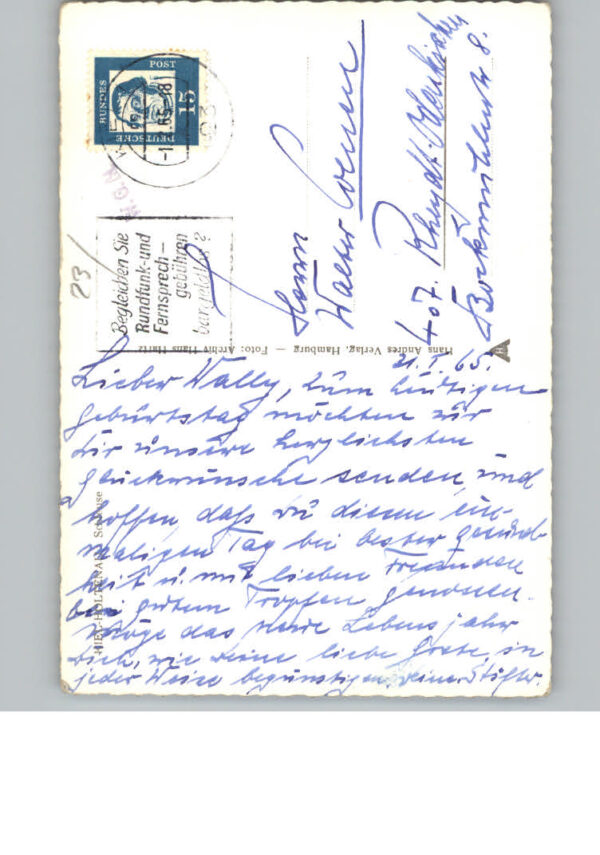 DEUTSCHE
BUNDES
POST
15
Begleichen Sie
Rundfunk-und
Fernsprech-
gebühren
bargeldlos?
23/
Herrn
Walter
407. Rheydt-
8.
Hans Andres Verlag, Hamburg - Foto: Archiv Hans Hartz
KIEL-HOLTENAU Schleuse
21. I. 65.
Lieber Wally, zum heutigen
Geburtstag möchten wir
dir unsere herzlichsten
Glückwünsche senden und
hoffen, daß du diesen ein-
maligen Tag bei bester Gesund-
heit u. mit lieben Freunden
bei gutem Tropfen
Möge das neue Lebensjahr
dich, wie deine liebe Grete, in
jeder Weise begünstigen.